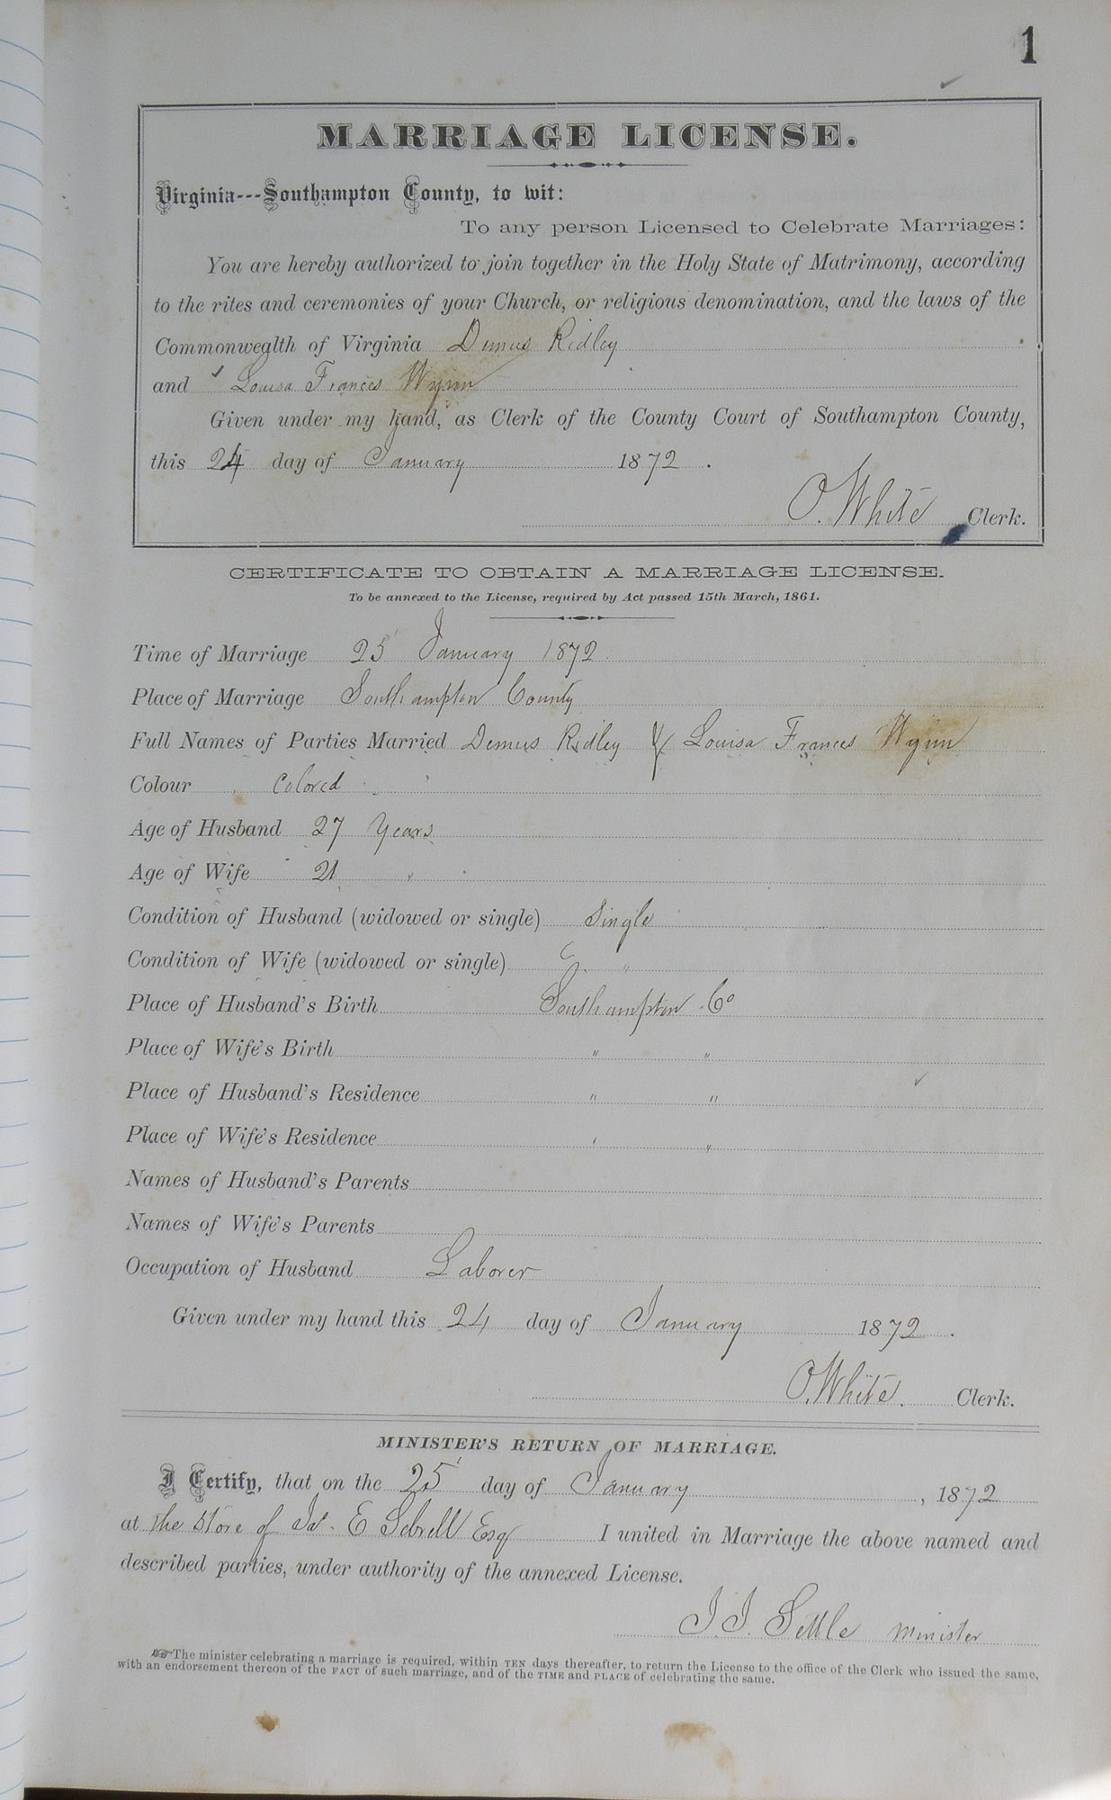 1
MARRIAGE LICENSE.
Virginia---Southampton County, to wit:
To any person Licensed to Celebrate Marriages:
You are hereby authorized to join together in the Holy State of Matrimony, according
to the rites and ceremonies of your Church, or religious denomination, and the laws of the
Commonwealth of Virginia Demus Ridley
and Louisa Frances Wynn
Given under my hand, as Clerk of the County Court of Southampton County,
this 24 day of January 1872.
O. White Clerk.
CERTIFICATE TO OBTAIN A MARRIAGE LICENSE.
To be annexed to the License, required by Act passed 15th March, 1861.
Time of Marriage 25 January 1872
Place of Marriage Southampton County
Full Names of Parties Married Demus Ridley & Louisa Frances Wynn
Colour Colored
Age of Husband 27 Years
Age of Wife 21 "
Condition of Husband (widowed or single) Single
Condition of Wife (widowed or single) "
Place of Husband's Birth Southampton Co
Place of Wife's Birth " "
Place of Husband's Residence " "
Place of Wife's Residence " "
Names of Husband's Parents
Names of Wife's Parents
Occupation of Husband Laborer
Given under my hand this 24 day of January 1872.
O. White. Clerk.
MINISTER'S RETURN OF MARRIAGE.
I Certify, that on the 25 day of January, 1872
at the Store of E Sebrell Esq I united in Marriage the above named and
described parties, under authority of the annexed License.
Settle Minister
☞ The minister celebrating a marriage is required, within TEN days thereafter, to return the License to the office of the Clerk who issued the same,
with an endorsement thereon of the FACT of such marriage, and of the TIME and PLACE of celebrating the same.